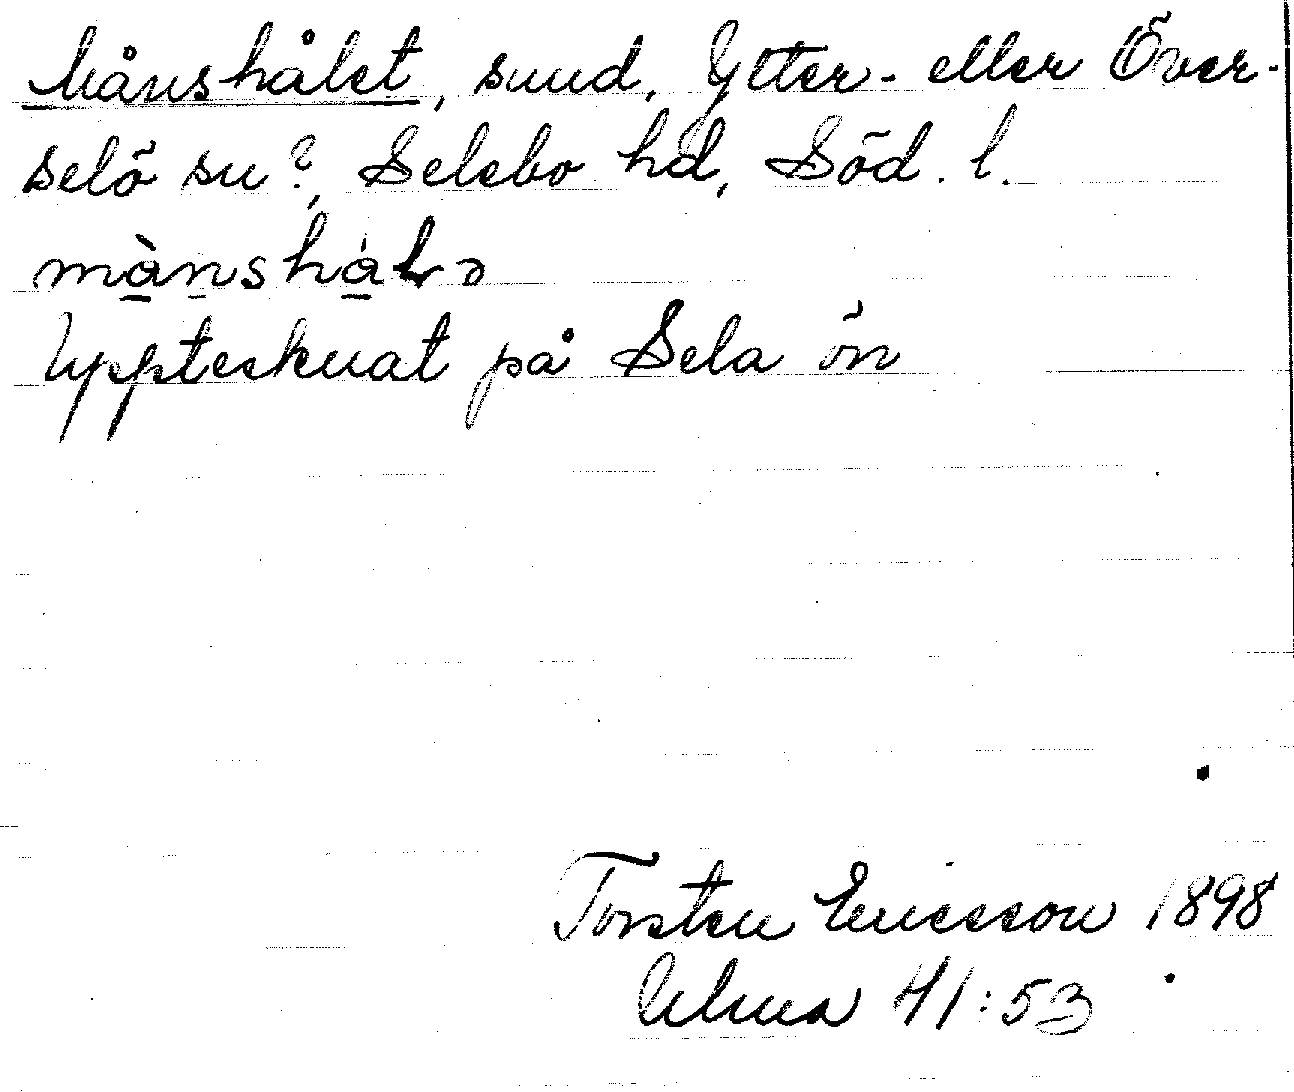 Månshålet, sund, Ytter- eller Över-
selö sn?, Selebo hd, Söd. l.
mànshålə
Uppteknat på Sela ön
Torsten Ericsson 1898
Ulma 41:53